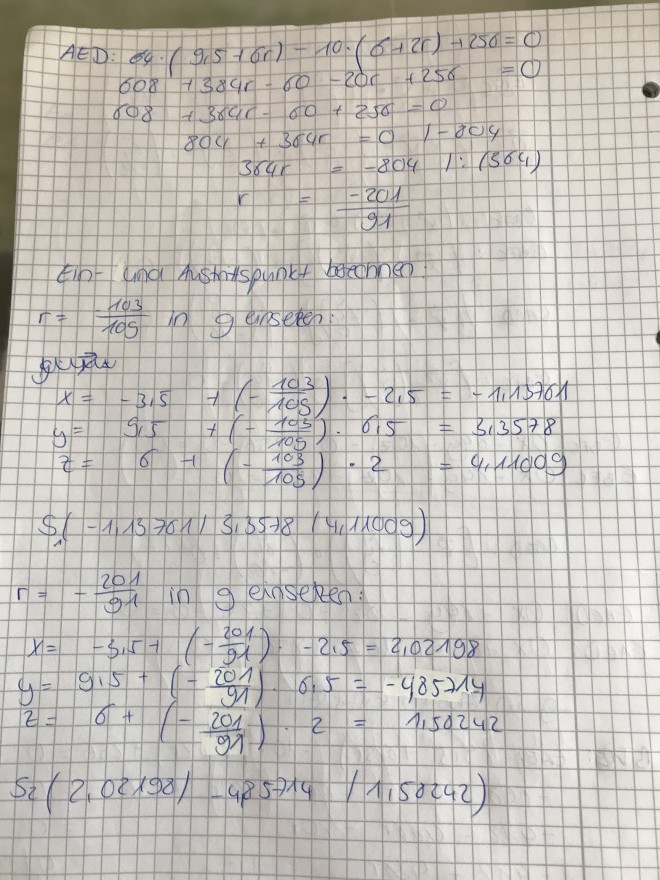 AED: 64·(9,5+6r) - 10·(6+2r) + 256 = 0
608 + 384r - 60 - 20r + 256 = 0
608 + 364r - 60 + 256 = 0
804 + 364r = 0 | -804
364r = -804 | : (364)
r = -201/91
Ein- und Austrittspunkt berechnen:
r = -103/109 in g einsetzen:
x = -3,5 + (-103/109) · -2,5 = -1,13761
y = 9,5 + (-103/109) · 6,5 = 3,3578
z = 6 + (-103/109) · 2 = 4,11009
S₁( -1,13761 / 3,3578 / 4,11009)
r = -201/91 in g einsetzen:
x = -3,5 + (-201/91) · -2,5 = 2,02198
y = 9,5 + (-201/91) · 6,5 = -485714
z = 6 + (-201/91) · 2 = 1,58242
S₂( 2,02198 / -4,85714 / 1,58242)